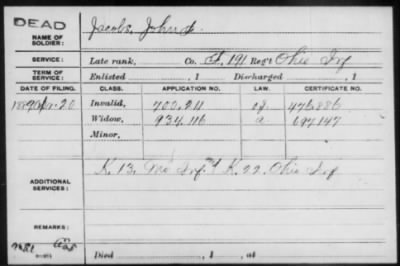 DEAD
NAME OF SOLDIER: Jacobs, John
SERVICE: Late rank, Co. F, 191 Reg't Ohio Inf
TERM OF SERVICE: Enlisted , 1 Discharged , 1
DATE OF FILING. CLASS. APPLICATION NO. LAW. CERTIFICATE NO.
1889 Apr. 20 Invalid, 700.211 476.886
Widow, 934.116 a 697.147
Minor,
ADDITIONAL SERVICES: K. 13. Mo Inf. & K. 22. Ohio Inf
REMARKS:
Died , 1 , at